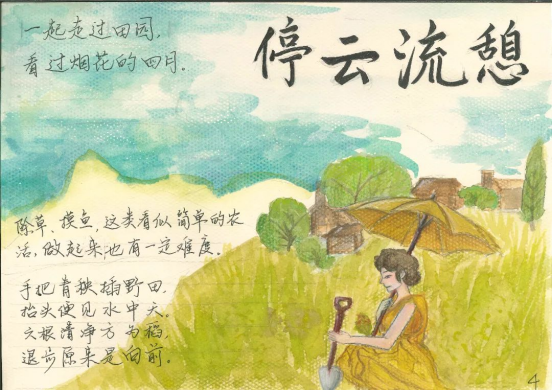 停云流憩
一起走过田园,
看过烟花的四月。
除草、摸鱼,这类看似简单的农
活,做起来也有一定难度。
手把青秧插野田,
抬头便见水中天。
六根清净方为稻,
退步原来是向前。
4